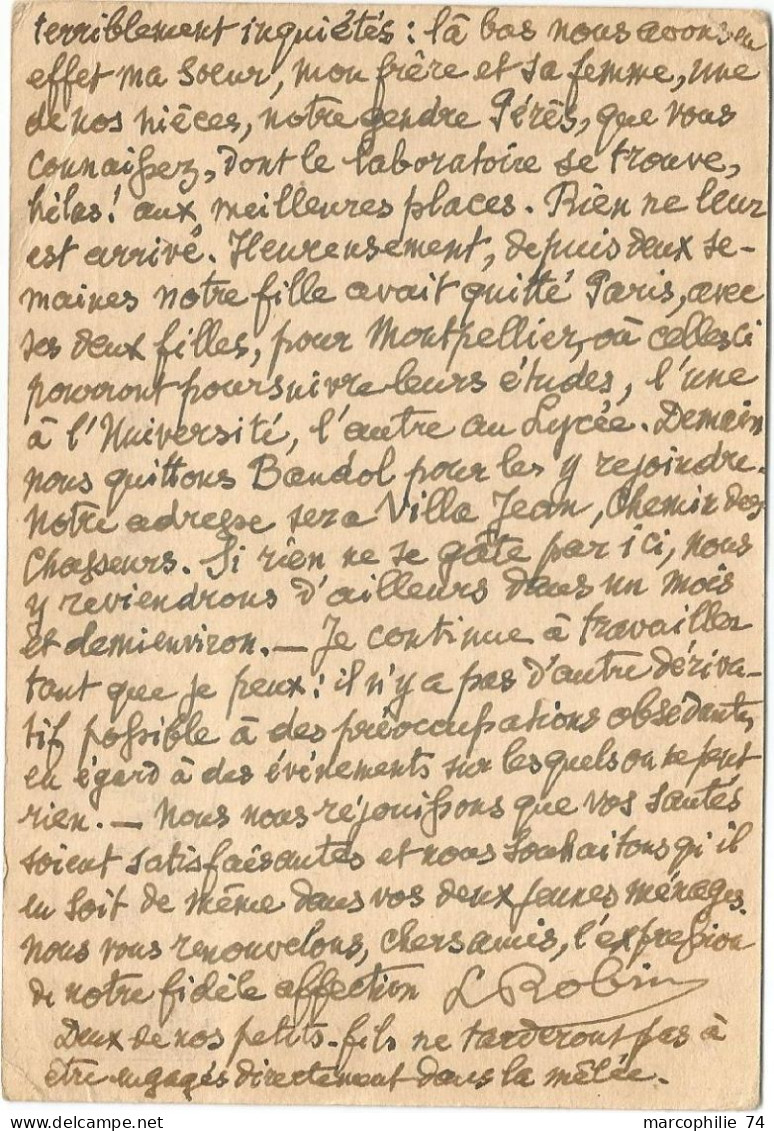 terriblement inquiétés : là bas nous avons en
effet ma sœur, mon frère et sa femme, une
de nos nièces, notre gendre Pérès, que vous
connaissez, dont le laboratoire se trouve,
hélas ! aux meilleures places. Rien ne leur
est arrivé. Heureusement, depuis deux se-
maines notre fille avait quitté Paris, avec
ses deux filles, pour Montpellier, où celles ci
pourront poursuivre leurs études, l'une
à l'Université, l'autre au Lycée. Demain
nous quittons Bandol pour les y rejoindre.
Notre adresse sera Villa Jean, Chemin des
Chasseurs. Si rien ne se gâte par ici, nous
y reviendrons d'ailleurs dans un mois
et demi environ. — Je continue à travailler
tant que je peux : il n'y a pas d'autre dériva-
tif possible à des préoccupations obsédantes
eu égard à des événements sur lesquels on ne peut
rien. — Nous nous réjouissons que vos santés
soient satisfaisantes et nous souhaitons qu'il
en soit de même dans vos deux jeunes ménages.
Nous vous renouvelons, chers amis, l'expression
de notre fidèle affection L Robin
Deux de nos petits-fils ne tarderont pas à
être engagés directement dans la mêlée.
marcophilie 74